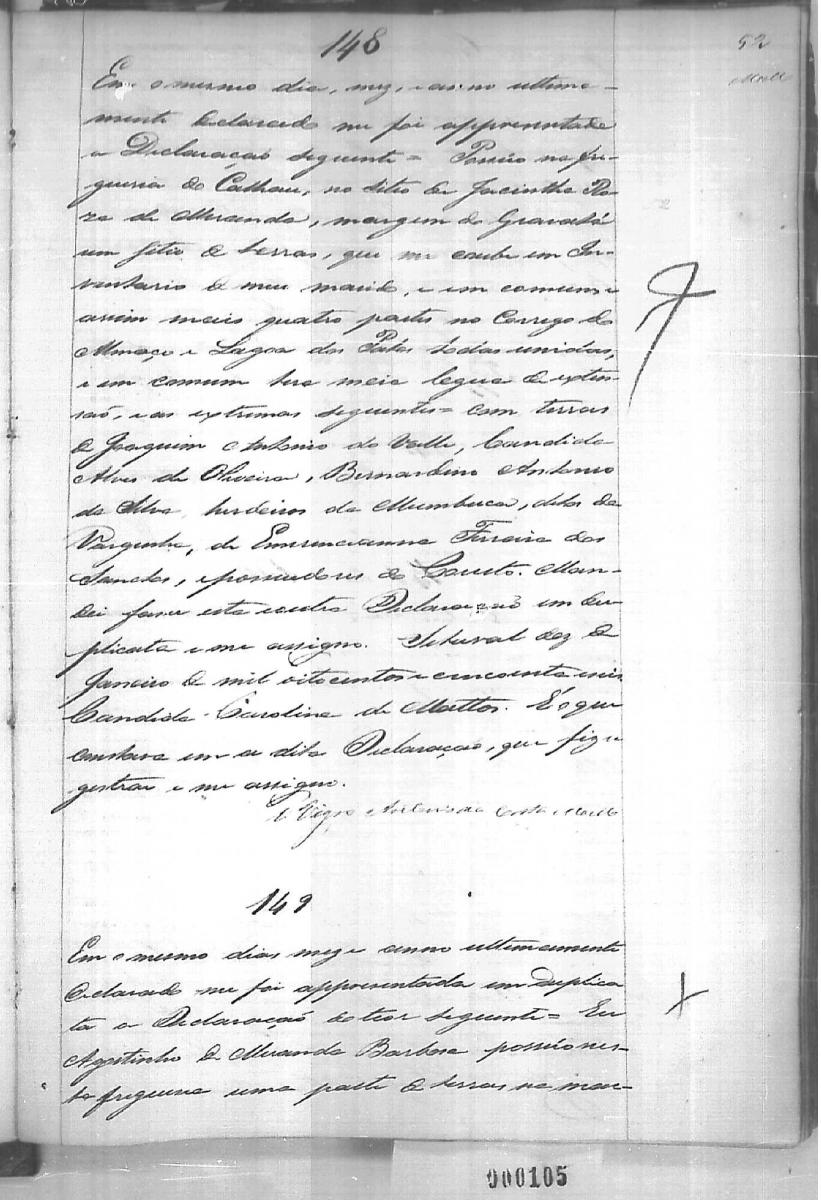 148
52
Em o mesmo dia, mez, e anno ultima-
mente declarado me foi appresentada
a Declaração seguinte = Possúo na fre-
guesia do Calhau, no sitio de Jacintha Ro-
za de Miranda, margem do Gravatá
um sitio de terras, que me coube em In-
ventario de meu marido, e em commum e
assim mais quatro partes no Corrego do
e Lagoa dos Patos todas unidas,
e em comum tera meia legua de exten-
saõ, e as extremas seguintes = com terras
de Joaquim Antonio do Valle, Candida
Alves de Oliveira, Bernardino Antonio
da Silva herdeiros da Mumbuca, ditos da
Varginha, de Emerenciana Ferreira dos
Santos, e possuidores do Man-
dei faser esta e outra Declaração em du-
plicata e me assigno. Setuval dez de
Janeiro de mil oitocentos e cincoenta e seis
Candida Carolina de Mattos. É o que
constava em a dita Declaração, que fiz re
gistrar e me assigno.
O Vigro da Costa
149
Em o mesmo dia mez e anno ultimamente
declarado me foi appresentada em duplica
ta a Declaraçaõ do teor seguinte = Eu
Agostinho de Miranda Barbosa possúo nes-
ta freguesia uma parte de terras na mar-
000105